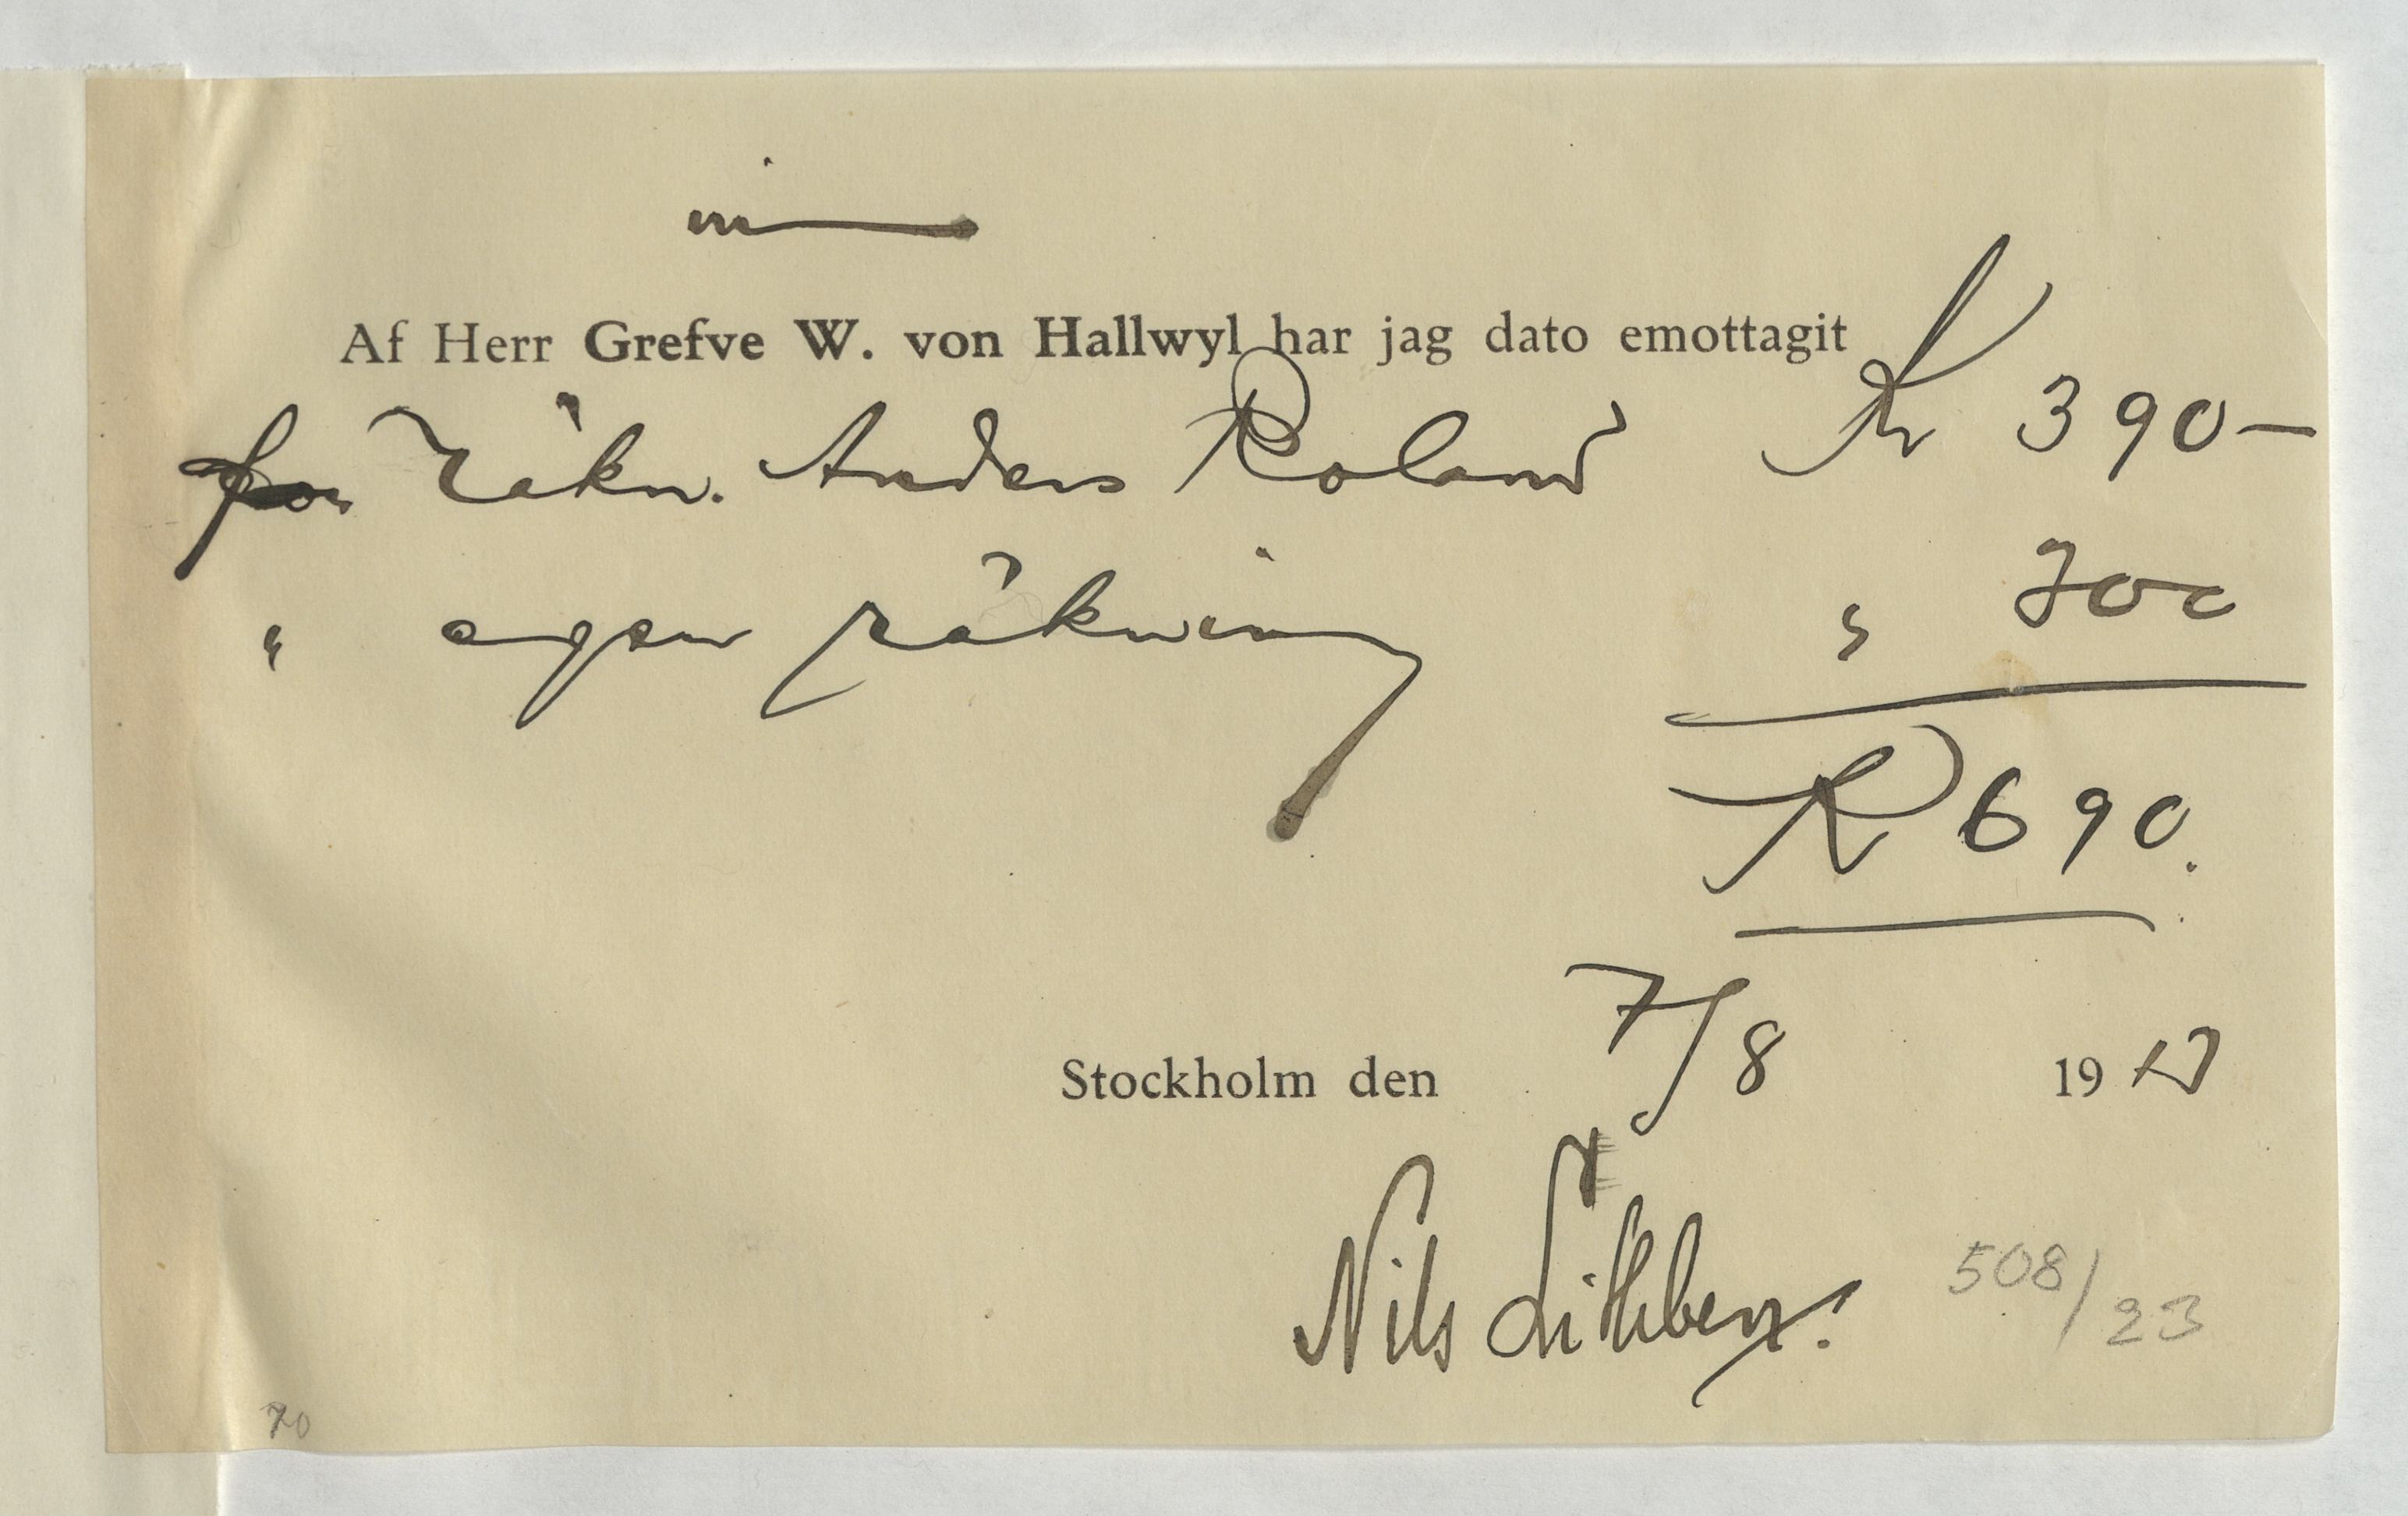 Af Herr Grefve W. von Hallwyl har jag dato emottagit
for räkn. Anders Roland Kr 390—
" egen räkning " 300
Kr 690.
Stockholm den 7/8 19
Nils Lithberg.
508/23
70